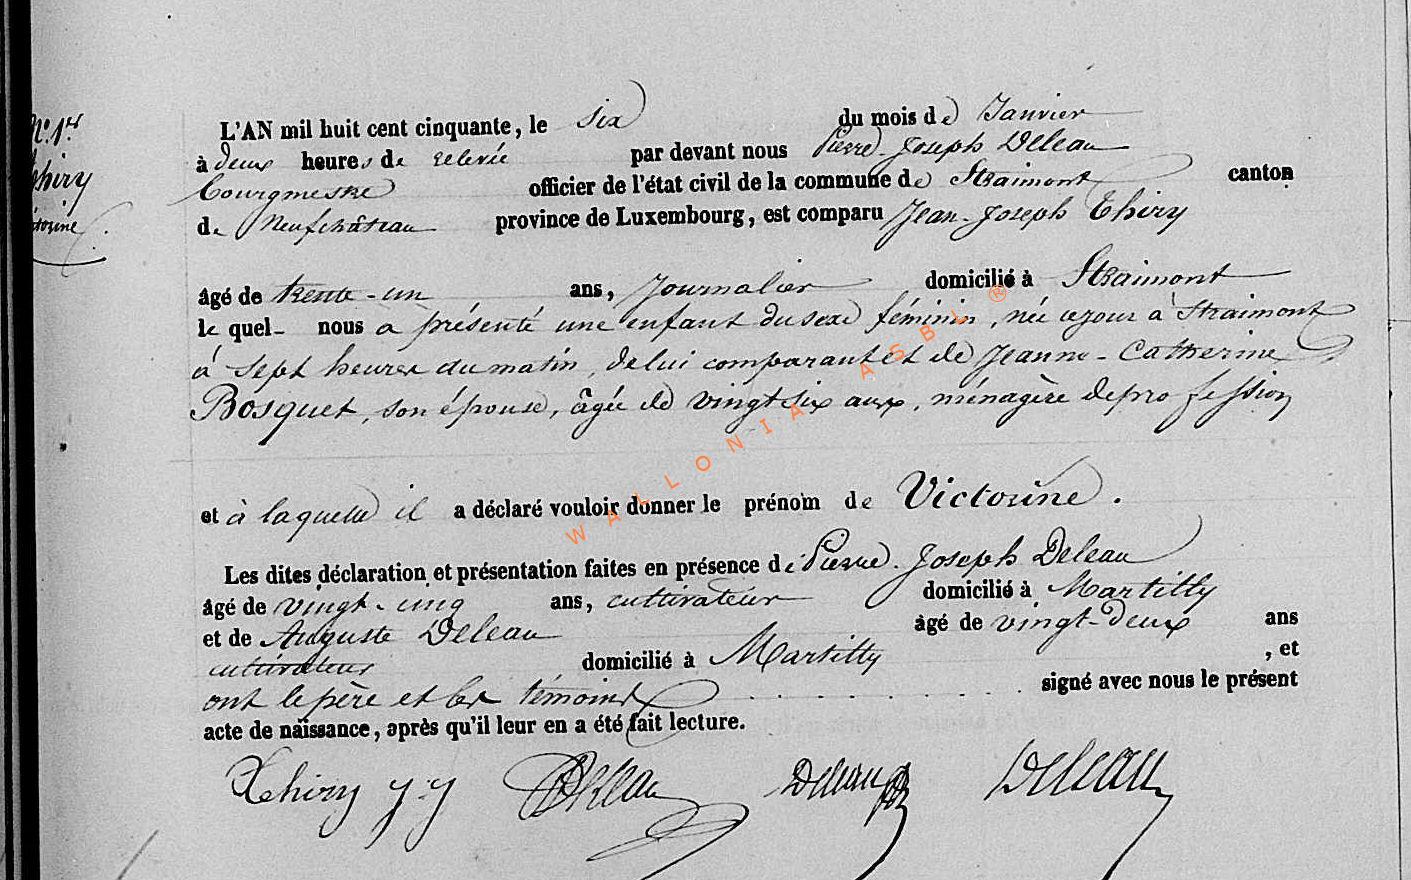 N° 1er
Thiry
Victorine
L'AN mil huit cent cinquante, le six du mois de Janvier
à deux heures de relevée par devant nous Pierre-Joseph Deleau
bourgmestre officier de l'état civil de la commune de Straimont canton
de Neufchâteau province de Luxembourg, est comparu Jean-Joseph Thiry
âgé de trente-un ans, Journalier domicilié à Straimont
lequel nous a présenté une enfant du sexe féminin, née ce jour à Straimont
à sept heures du matin, de lui comparant et de Jeanne-Catherine
Bosquet, son épouse, âgée de vingt six ans, ménagère de profession
et à laquelle il a déclaré vouloir donner le prénom de Victorine.
Les dites déclaration et présentation faites en présence de Pierre-Joseph Deleau
âgé de vingt-cinq ans, cultivateur domicilié à Martilly
et de Auguste Deleau âgé de vingt-deux ans
cultivateur domicilié à Martilly, et
ont le père et les témoins signé avec nous le présent
acte de naissance, après qu'il leur en a été fait lecture.
Thiry J.J Deleau Deleau Deleau
WALLONIA ASBL ®